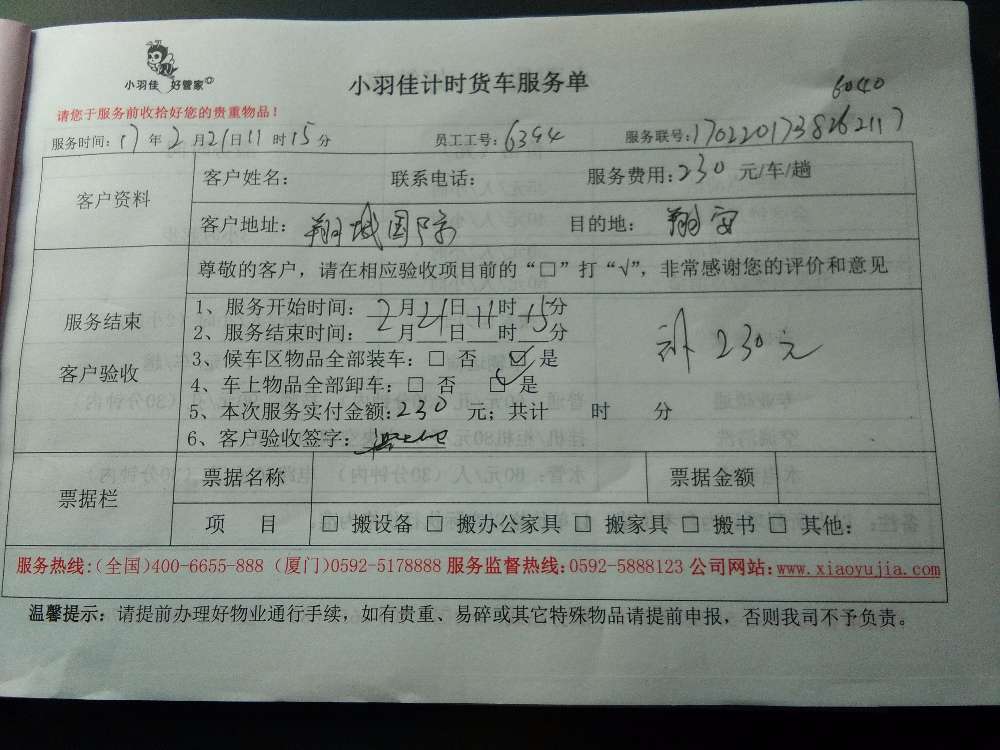 小羽佳 好管家
小羽佳计时货车服务单
6040
请您于服务前收拾好您的贵重物品！
服务时间：17年2月21日11时15分 员工工号：6394 服务联号：1702201738262117
客户资料
客户姓名： 联系电话： 服务费用：230 元/车/趟
客户地址：翔城国际 目的地：翔安
服务结束
客户验收
尊敬的客户，请在相应验收项目前的“□”打“√”，非常感谢您的评价和意见
1、服务开始时间：2月21日11时15分
2、服务结束时间：___月___日___时___分
3、候车区物品全部装车：□ 否 ☑ 是
4、车上物品全部卸车：□ 否 ☑ 是
5、本次服务实付金额：230 元；共计 时 分
6、客户验收签字：
计 230元
票据栏
票据名称 票据金额
项 目 □ 搬设备 □ 搬办公家具 □ 搬家具 □ 搬书 □ 其他：
服务热线：（全国）400-6655-888（厦门）0592-5178888 服务监督热线：0592-5888123 公司网站：www.xiaoyujia.com
温馨提示：请提前办理好物业通行手续，如有贵重、易碎或其它特殊物品请提前申报，否则我司不予负责。